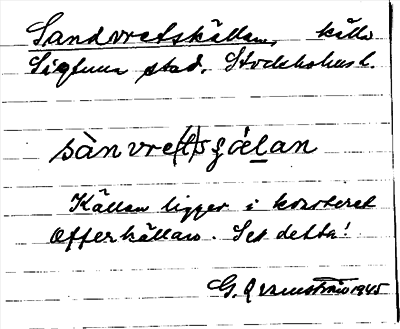 Sandvretskällan, källa
Sigtuna stad. Stockholms l.
sànvre(t)sɕä́lan
Källan ligger i kvarteret
Offerkällan. Set detta!
G. 1945